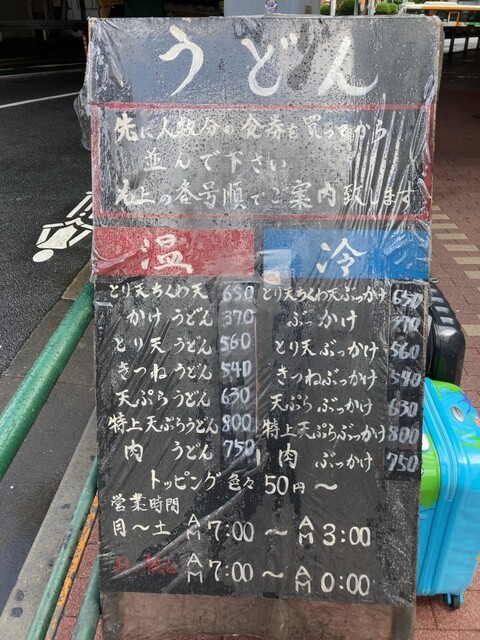 うどん
先に人数分の食券を買ってから
並んで下さい
上の番号順でご案内致します
温 冷
とり天ちくわ天 650 とり天ちくわ天ぶっかけ 650
かけうどん 370 ぶっかけ
とり天うどん 560 とり天ぶっかけ 560
きつねうどん 540 きつねぶっかけ 540
天ぷらうどん 630 天ぷらぶっかけ 630
特上天ぷらうどん 800 特上天ぷらぶっかけ 800
肉うどん 750 肉ぶっかけ 750
トッピング色々50円〜
営業時間
月〜土 AM7:00〜AM3:00
AM7:00〜AM0:00